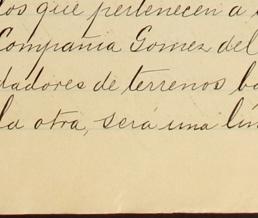 los que pertenecen a
Compañia Gomez del
dadores de terrenos ba
la otra, será una lín